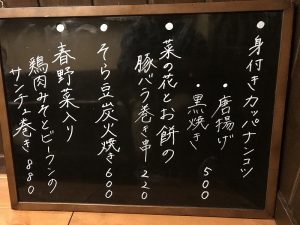 ・身付きカッパナンコツ
・唐揚げ
・黒焼き
500
・菜の花とお餅の
豚バラ巻き串 220
・そら豆炭火焼き 600
・春野菜入り
鶏肉みそとビーフンの
サンチュ巻き 880